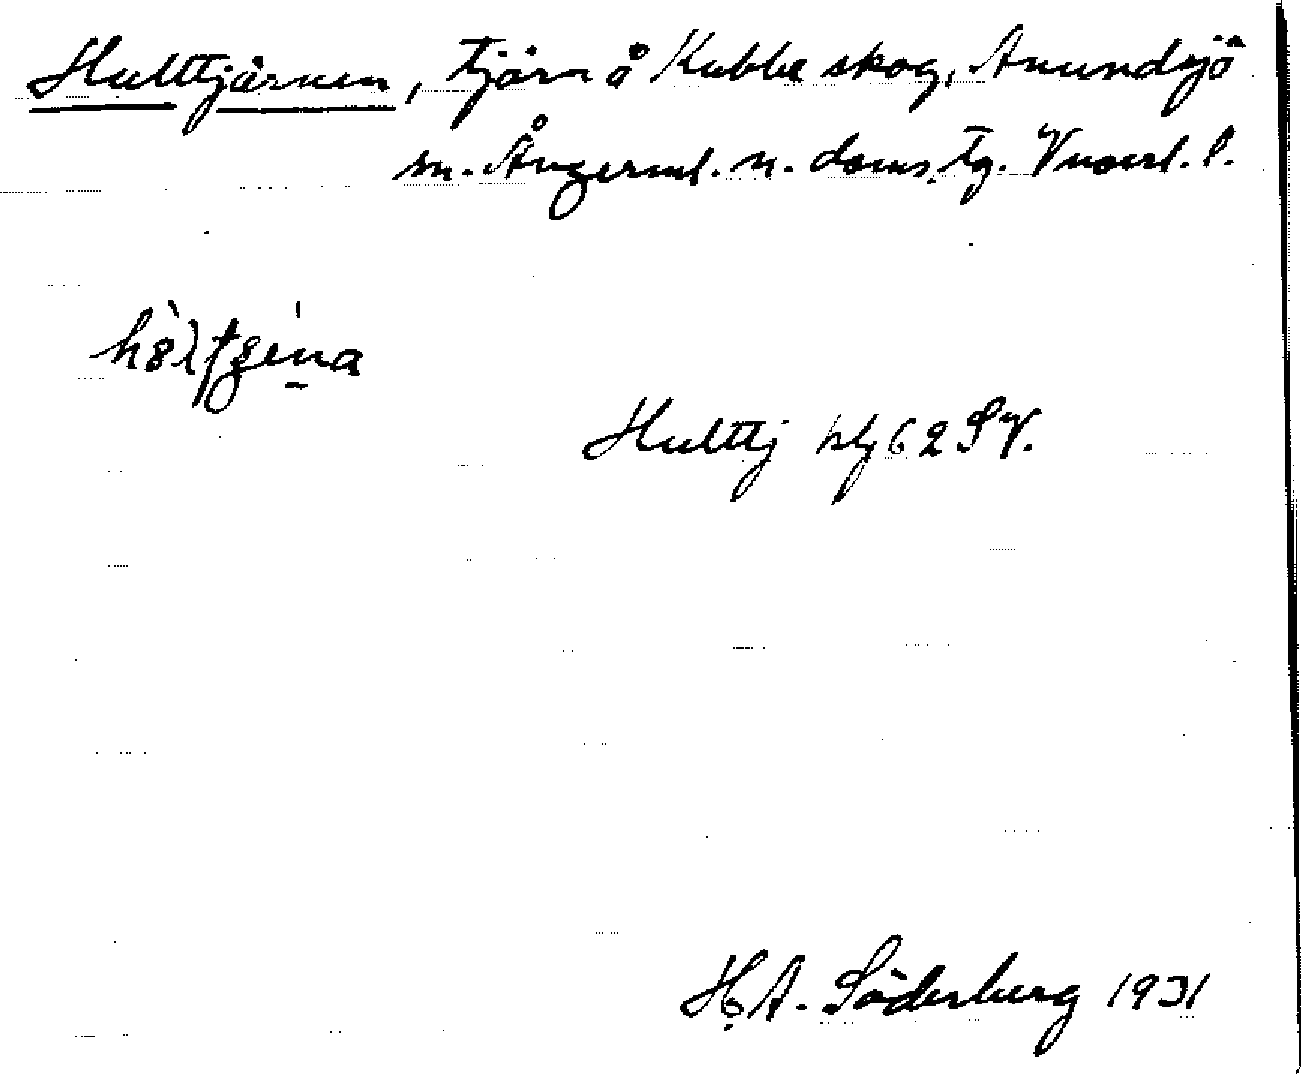 Hulttjärnen, tjärn å Kubbe skog, Anundsjö
sn. Ångerml. n. doms. tg. Vnorrl. l.
Hulttj blj 62 SV.
H. A. Söderberg 1931